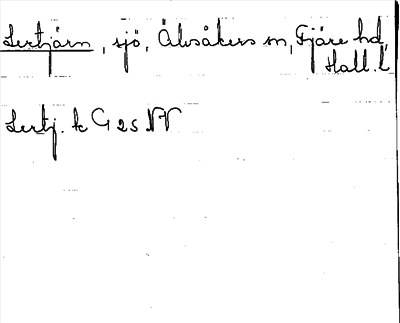 Lertjärn, sjö, Älvsåkers sn, Fjäre hd,
Hall. l
Lertj. k G 25 NV